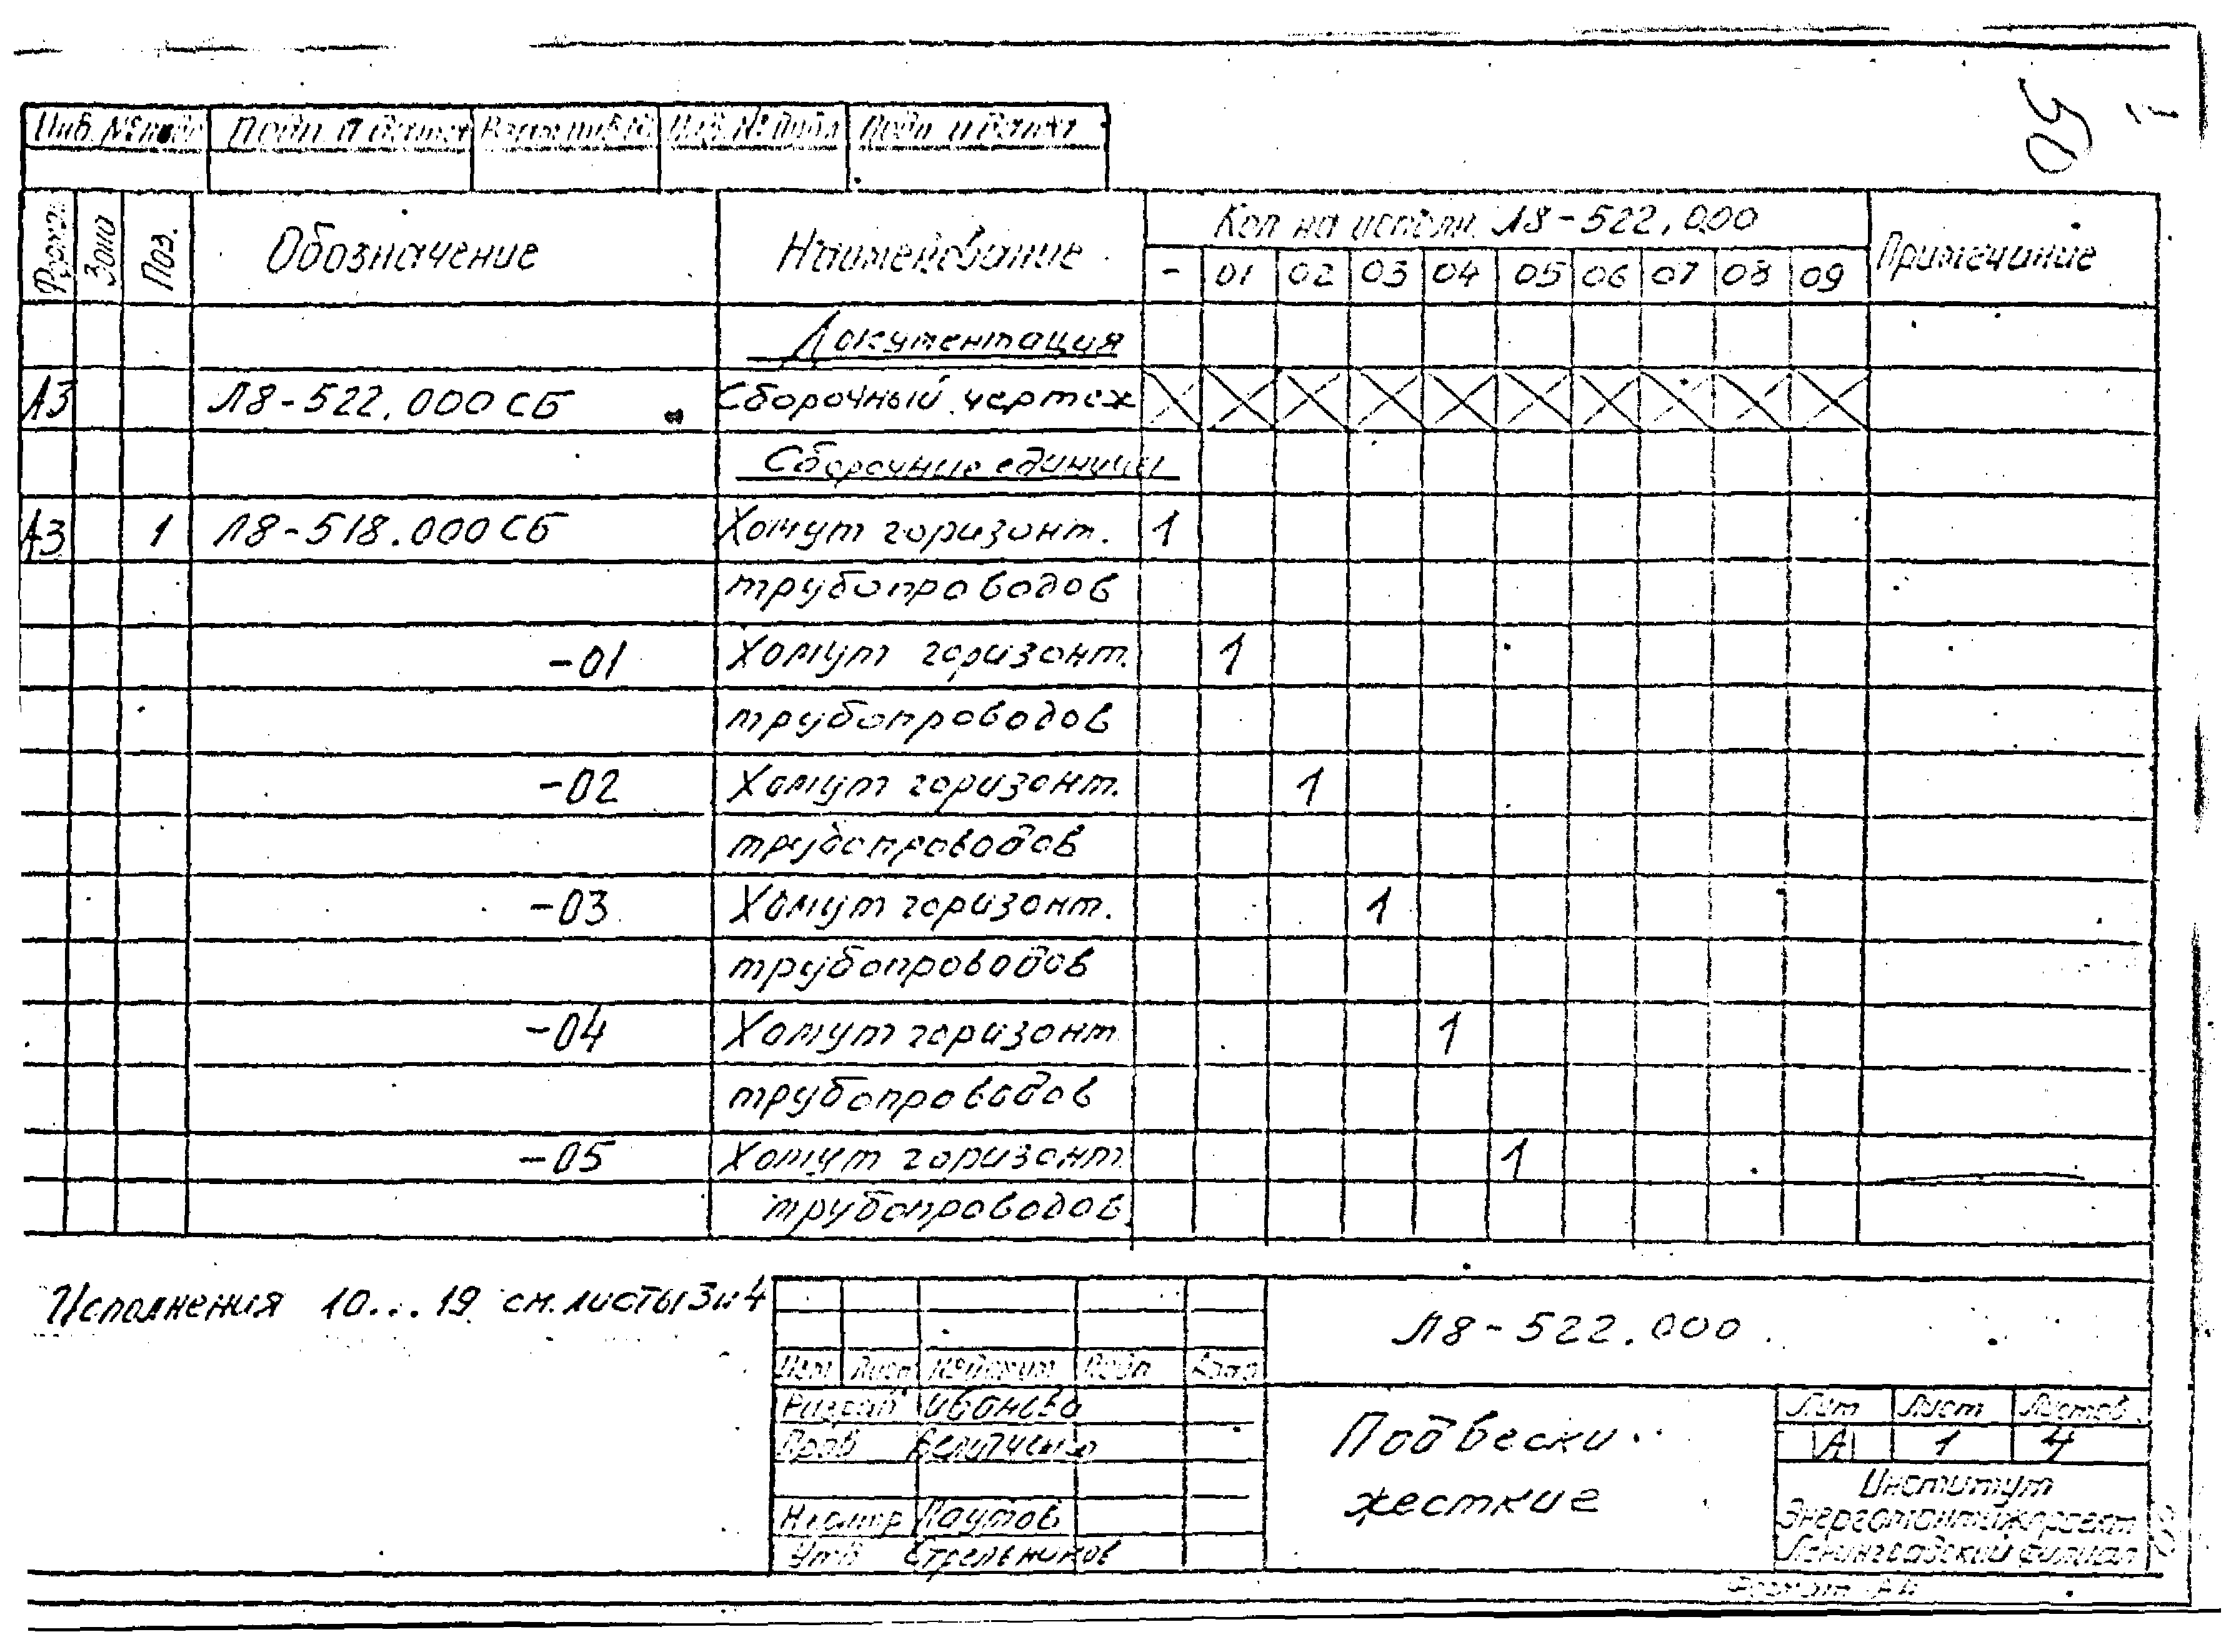 50
Инв. № подл. Подп. и дата Взам. инв. № Инв. № дубл. Подп. и дата
Форм. Зона Поз. Обозначение Наименование Кол на исполн. Л8-522.000 Примечание
- 01 02 03 04 05 06 07 08 09
Документация
А3 Л8-522.000 СБ Сборочный чертеж
Сборочные единицы
А3 1 Л8-518.000 СБ Хомут горизонт. 1
трубопроводов
-01 Хомут горизонт. 1
трубопроводов
-02 Хомут горизонт. 1
трубопроводов
-03 Хомут горизонт. 1
трубопроводов
-04 Хомут горизонт 1
трубопроводов
-05 Хомут горизонт. 1
трубопроводов.
Исполнения 10...19 см. листы 3и4
Л8-522.000
Изм Лист № докум Подп Дата
Разраб Иванова
Пров
Н.контр Паутов
Утв Стрельников
Подвески
жесткие
Лит Лист Листов
А 1 4
Институт
Энергомонтажпроект
Ленинградский филиал
Формат А4